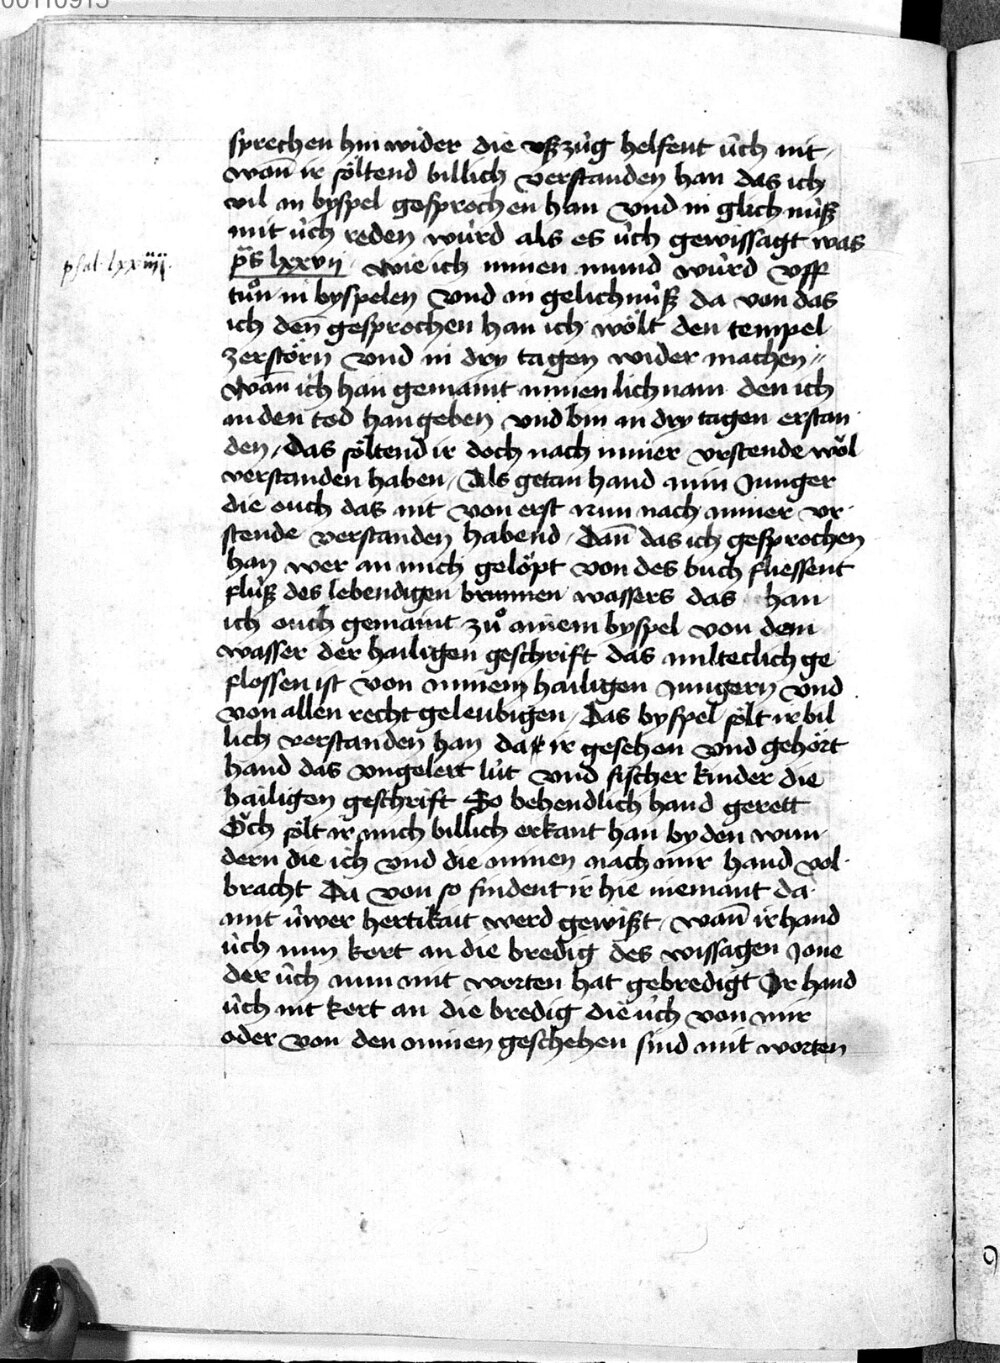 00110913
sprechen hin wider die vßzüg helfent üch nit
wan̄ ir söltend billich verstanden han das ich
vil in byspel gesprochen han vnd in glichnüß
mit üch reden würd als es üch gewissagt was
psal. lxxiiij.
p̄s lxxvij. Wie ich minen mund würd vff
tuͦn in byspelen vnd in gelichnüß da von das
ich den gesprochen han ich wölt den tempel
zerstörn vnd in dry tagen wider machen
Wan̄ ich han gemaint minen lichnam den ich
in den tod han geben vnd bin an dry tagen erstan
den, Das söltend ir doch nach miner vrstende wöl
verstanden haben, Als getan hand min Junger
die ouch das nit von erst nun nach miner vr
stende verstanden habend, Dan̄ das ich gesprochen
han wer an mich gelöpt von des buch fliessent
flüß des lebendigen brunnen wassers das han
ich ouch gemaint zuͦ ainem byspel von dem
wasser der hailigen geschrift das milteclich ge
flossen ist von minem hailigen Jungern vnd
von allen recht geleubigen, Das byspel sölt ir bil
lich verstanden han da ir gesehen vnd gehört
hand das vngelert lüt vnd fischer kinder die
hailigen geschrift So behendlich hand gerett
Öch sölt ir mich billich erkant han by den wun
dern die ich vnd die minen nach mir hand vol
bracht Da von so findent ir hie niemant da
mit üwer hertikait werd gewißt, wan̄ ir hand
üch nun kert an die bredig des wissagen Jone
der üch nun mit worten hat gebredigt Ir hand
üch nit kert an die bredig die üch von mir
oder von den minen geschehen sind mit worten